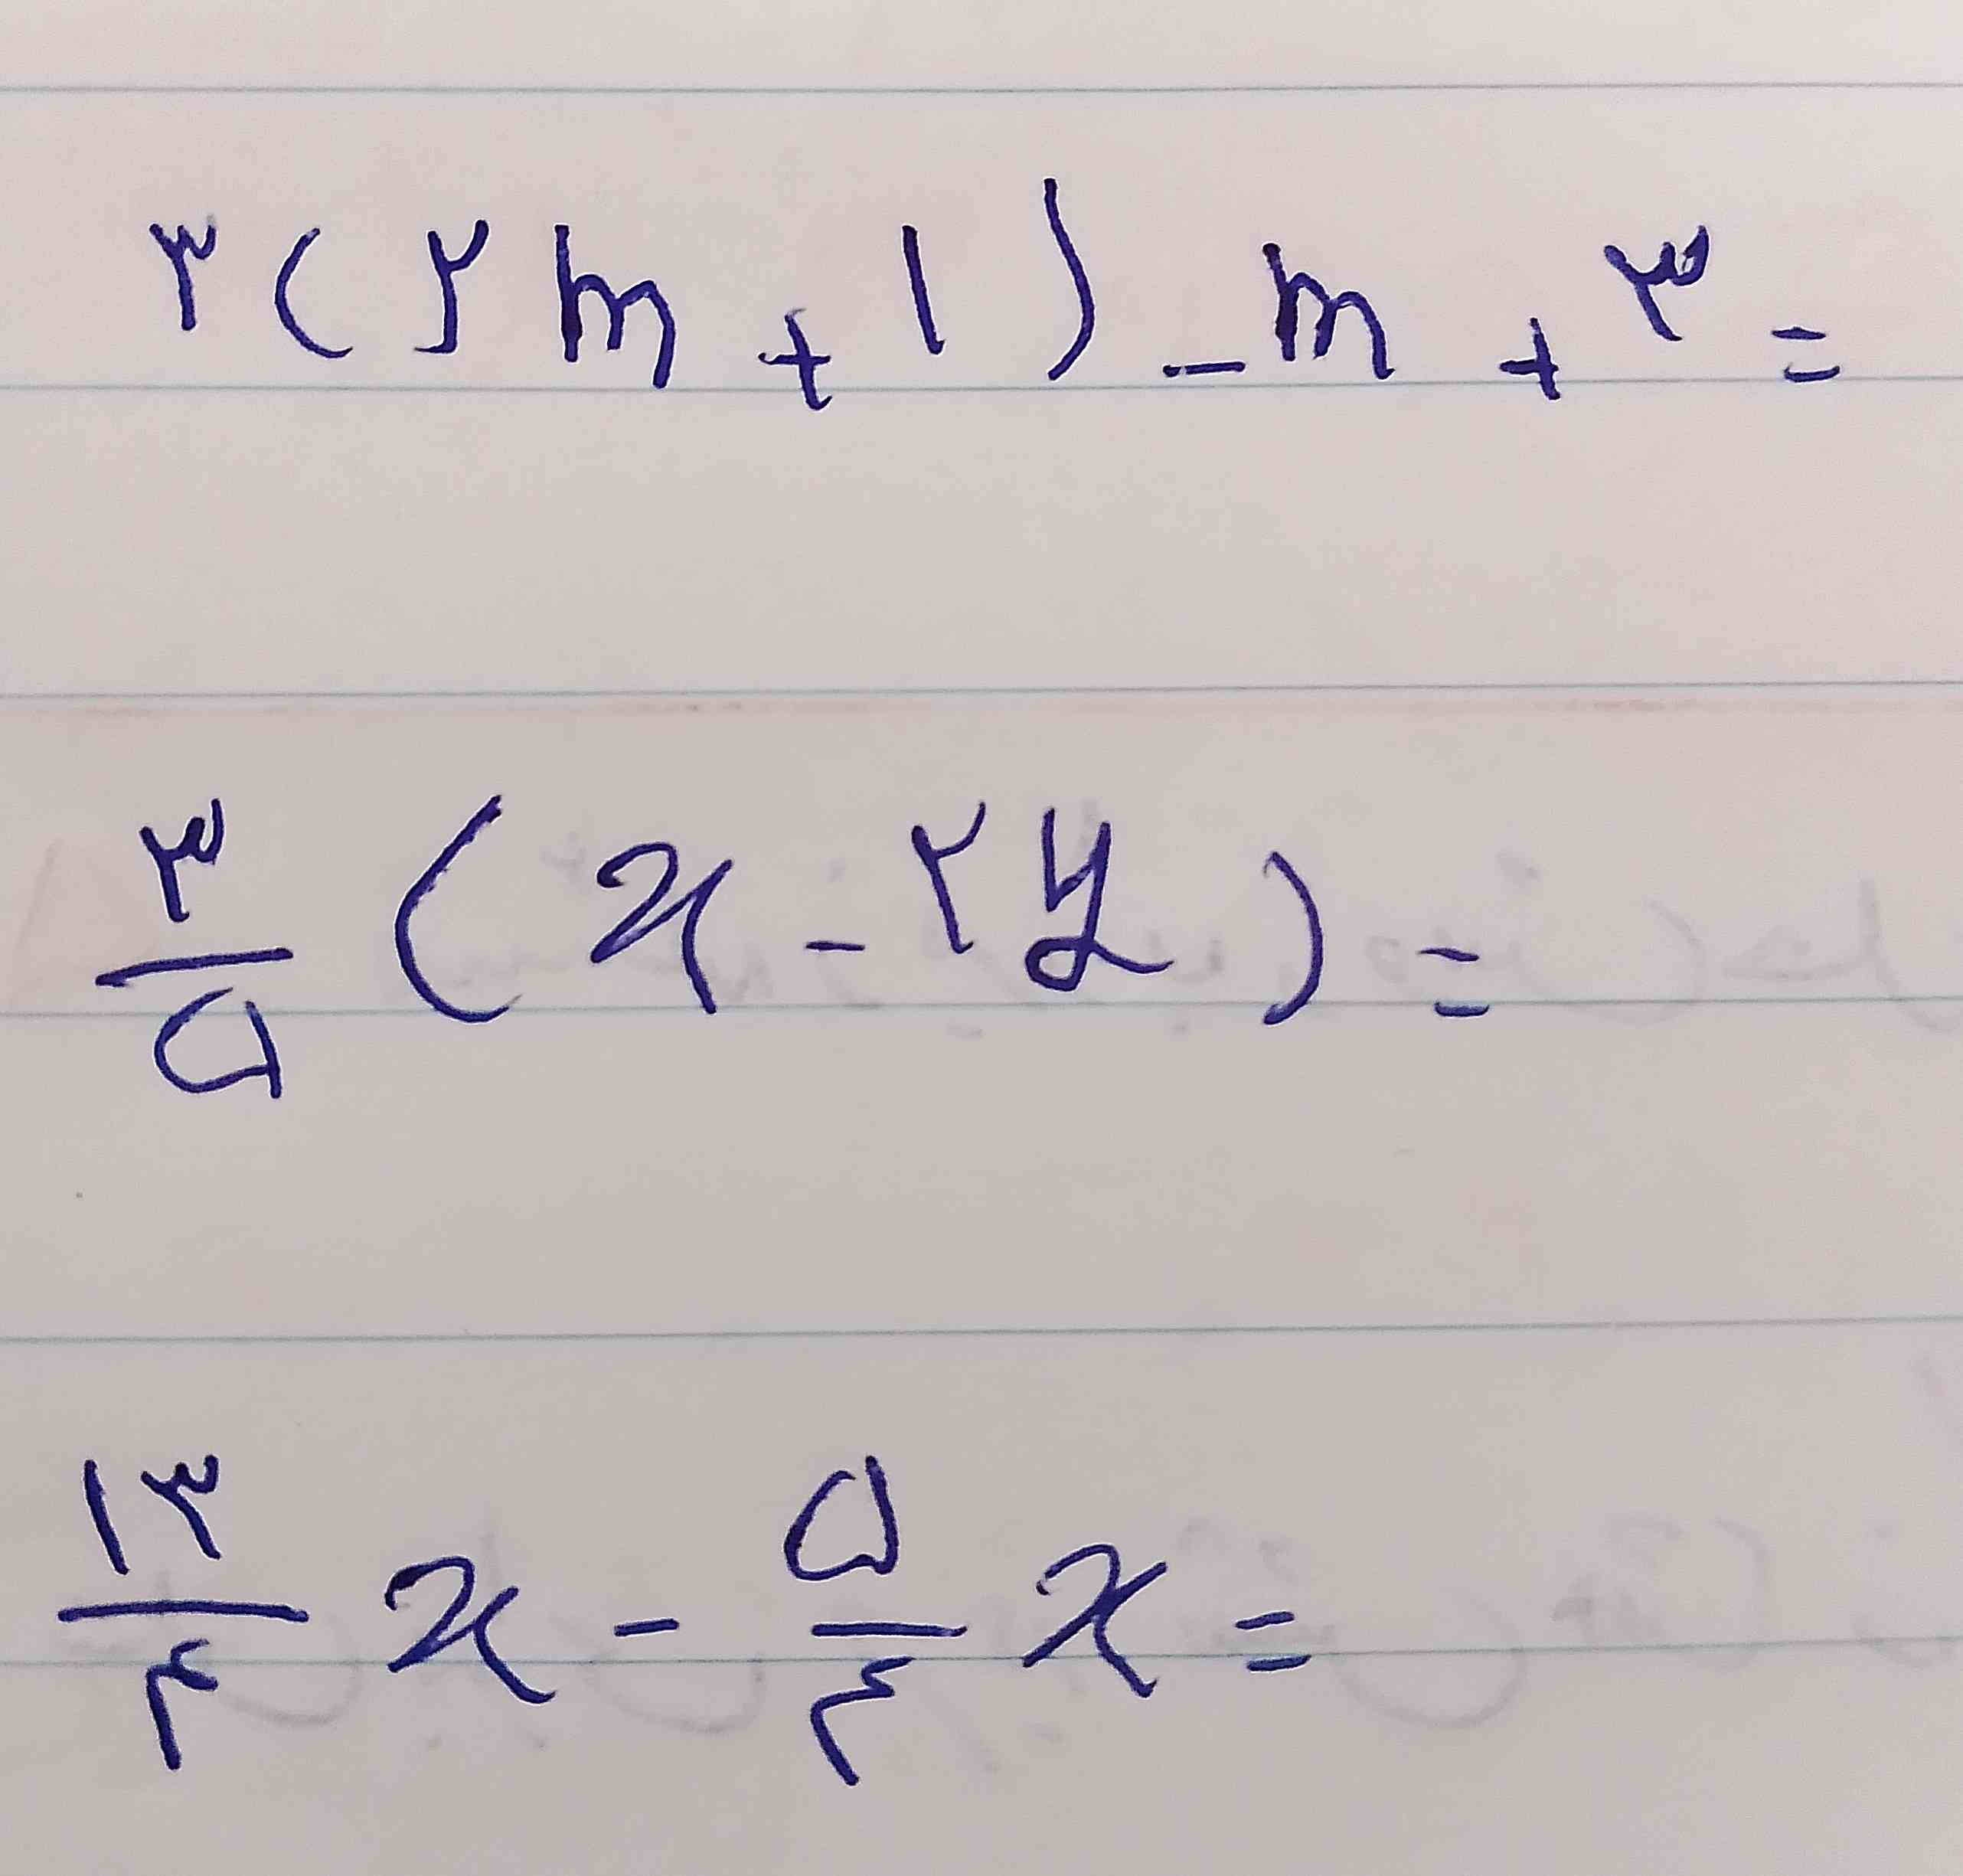 ۳(۲m+۱)-m+۳=
۳/۵(x-۲y)=
۱۳/۴x-۵/۴x=